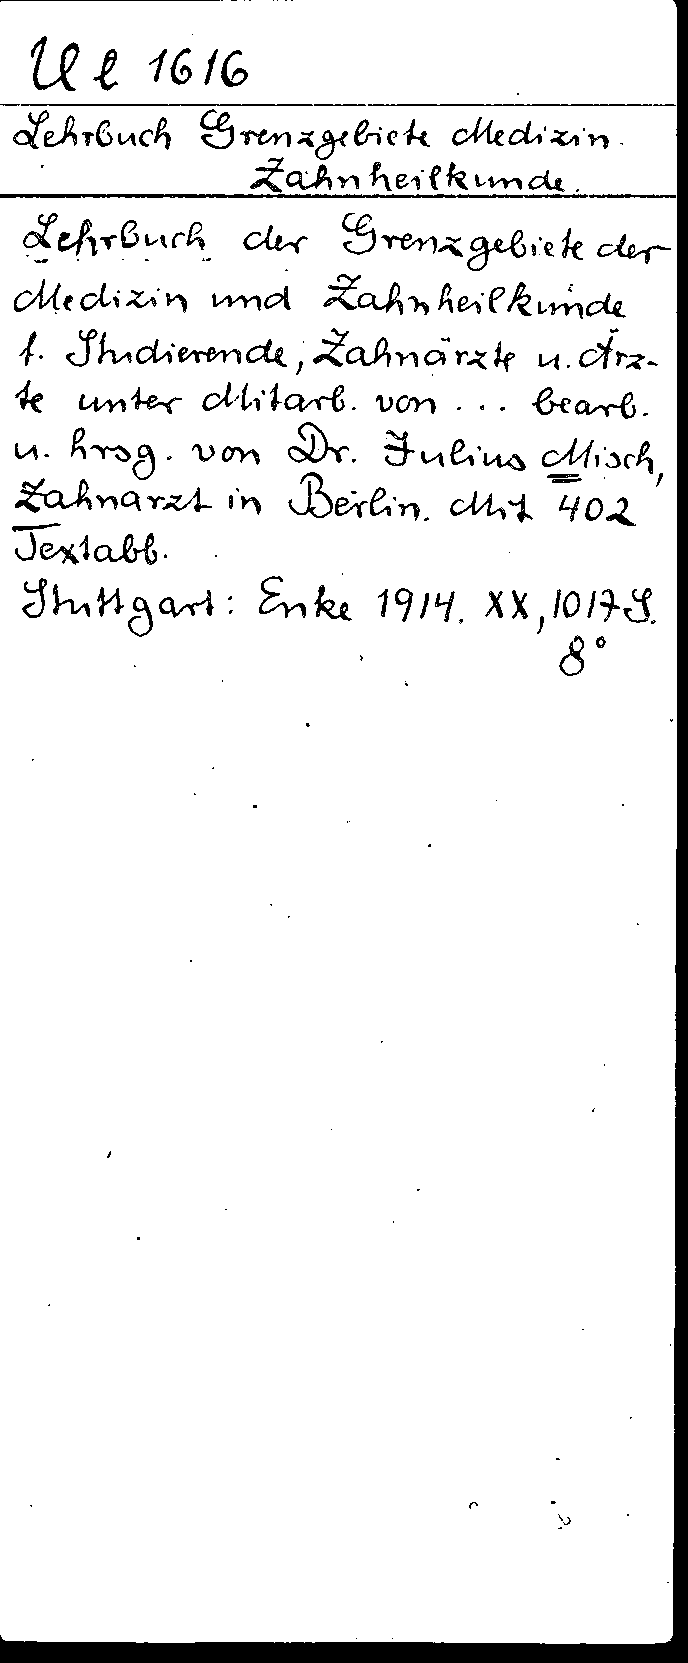 Ul 1616
Lehrbuch Grenzgebiete Medizin.
Zahnheilkunde.
Lehrbuch der Grenzgebiete der
Medizin und Zahnheilkunde
f. Studierende, Zahnärzte u. Ärz-
te unter Mitarb. von ... bearb.
u. hrsg. von Dr. Julius Misch,
Zahnarzt in Berlin. Mit 402
Textabb.
Stuttgart: Enke 1914. XX, 1017 S.
8°